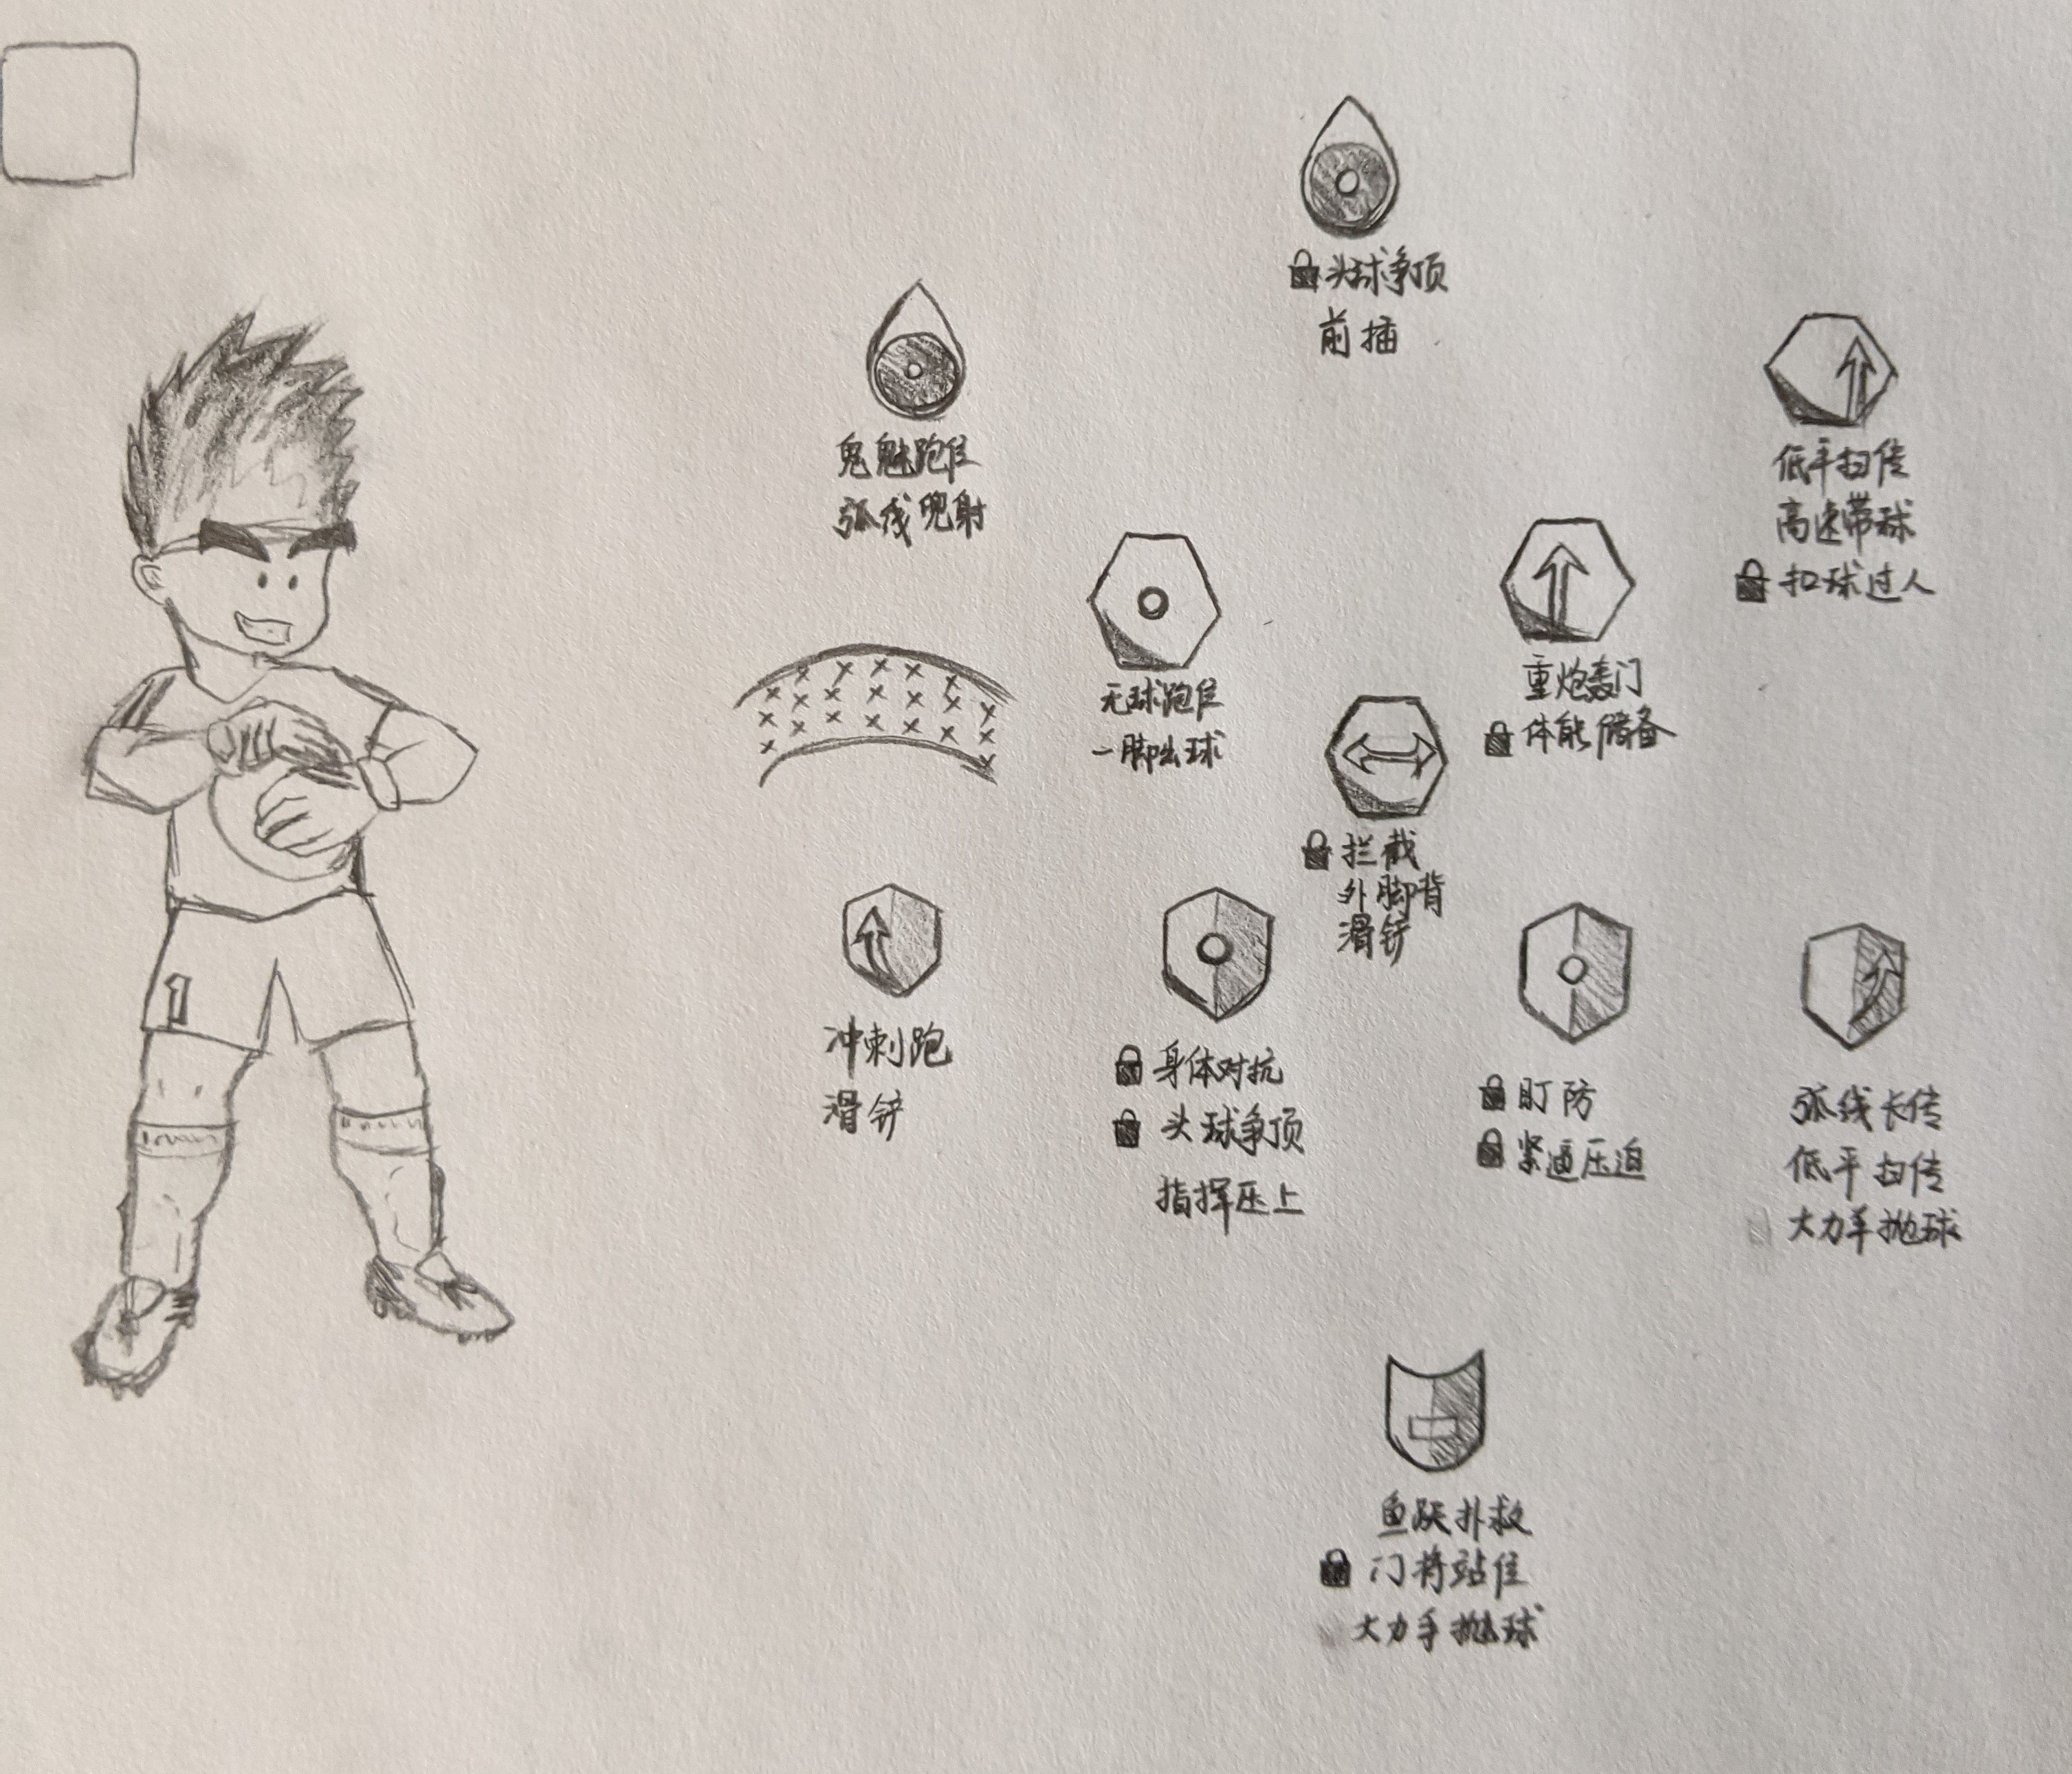 头球争顶
前插
鬼魅跑位
弧线兜射
低平扫传
高速带球
扣球过人
无球跑位
一脚出球
重炮轰门
体能储备
拦截
外脚背
滑铲
冲刺跑
滑铲
身体对抗
头球争顶
指挥压上
盯防
紧逼压迫
弧线长传
低平扫传
大力手抛球
1
鱼跃扑救
门将站位
大力手抛球